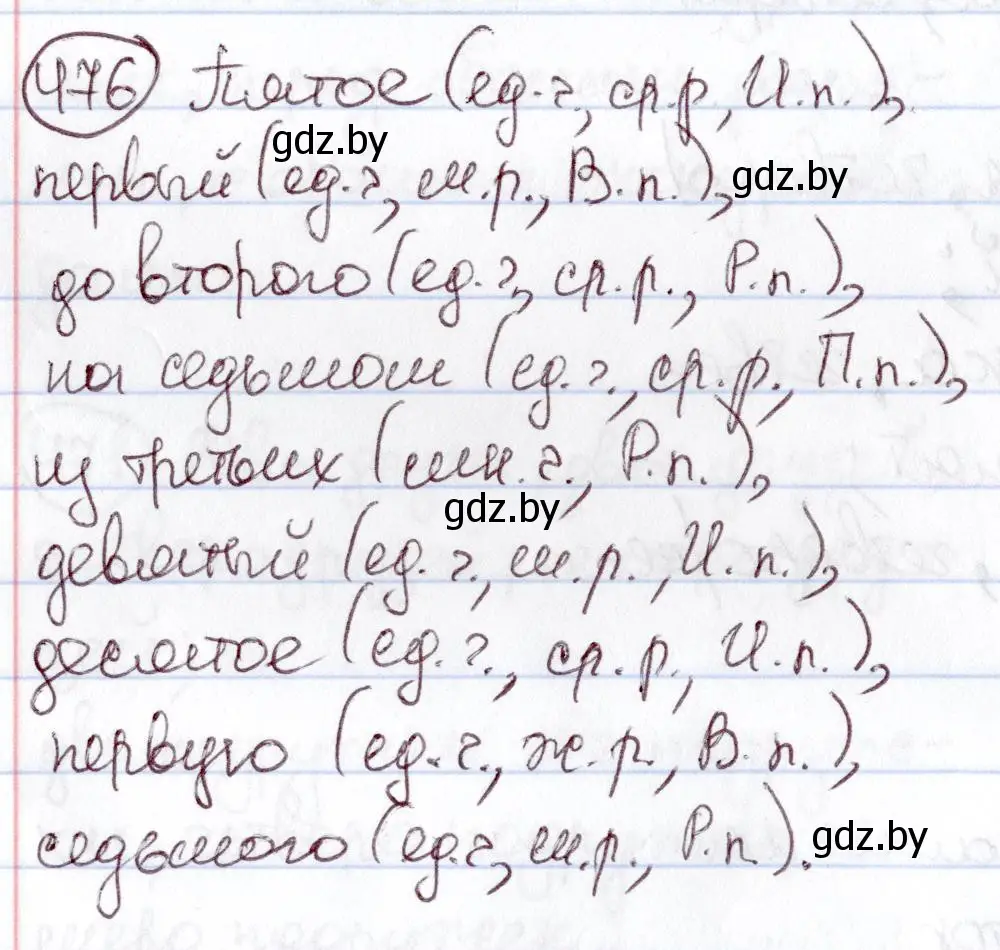 476 Пятое (ед.ч, ср.р, И.п.),
gdz.by
первый (ед.ч, м.р., В.п.), gdz.by
до второго (ед.ч, ср.р., Р.п.),
на седьмом (ед.ч., ср.р., П.п.),
из третьих (мн.ч., Р.п.),
gdz.by
девятый (ед.ч., м.р., И.п.),
десятое (ед.ч., ср.р., И.п.),
первую (ед.ч., ж.р., В.п.),
седьмого (ед.ч, м.р., Р.п.). gdz.by